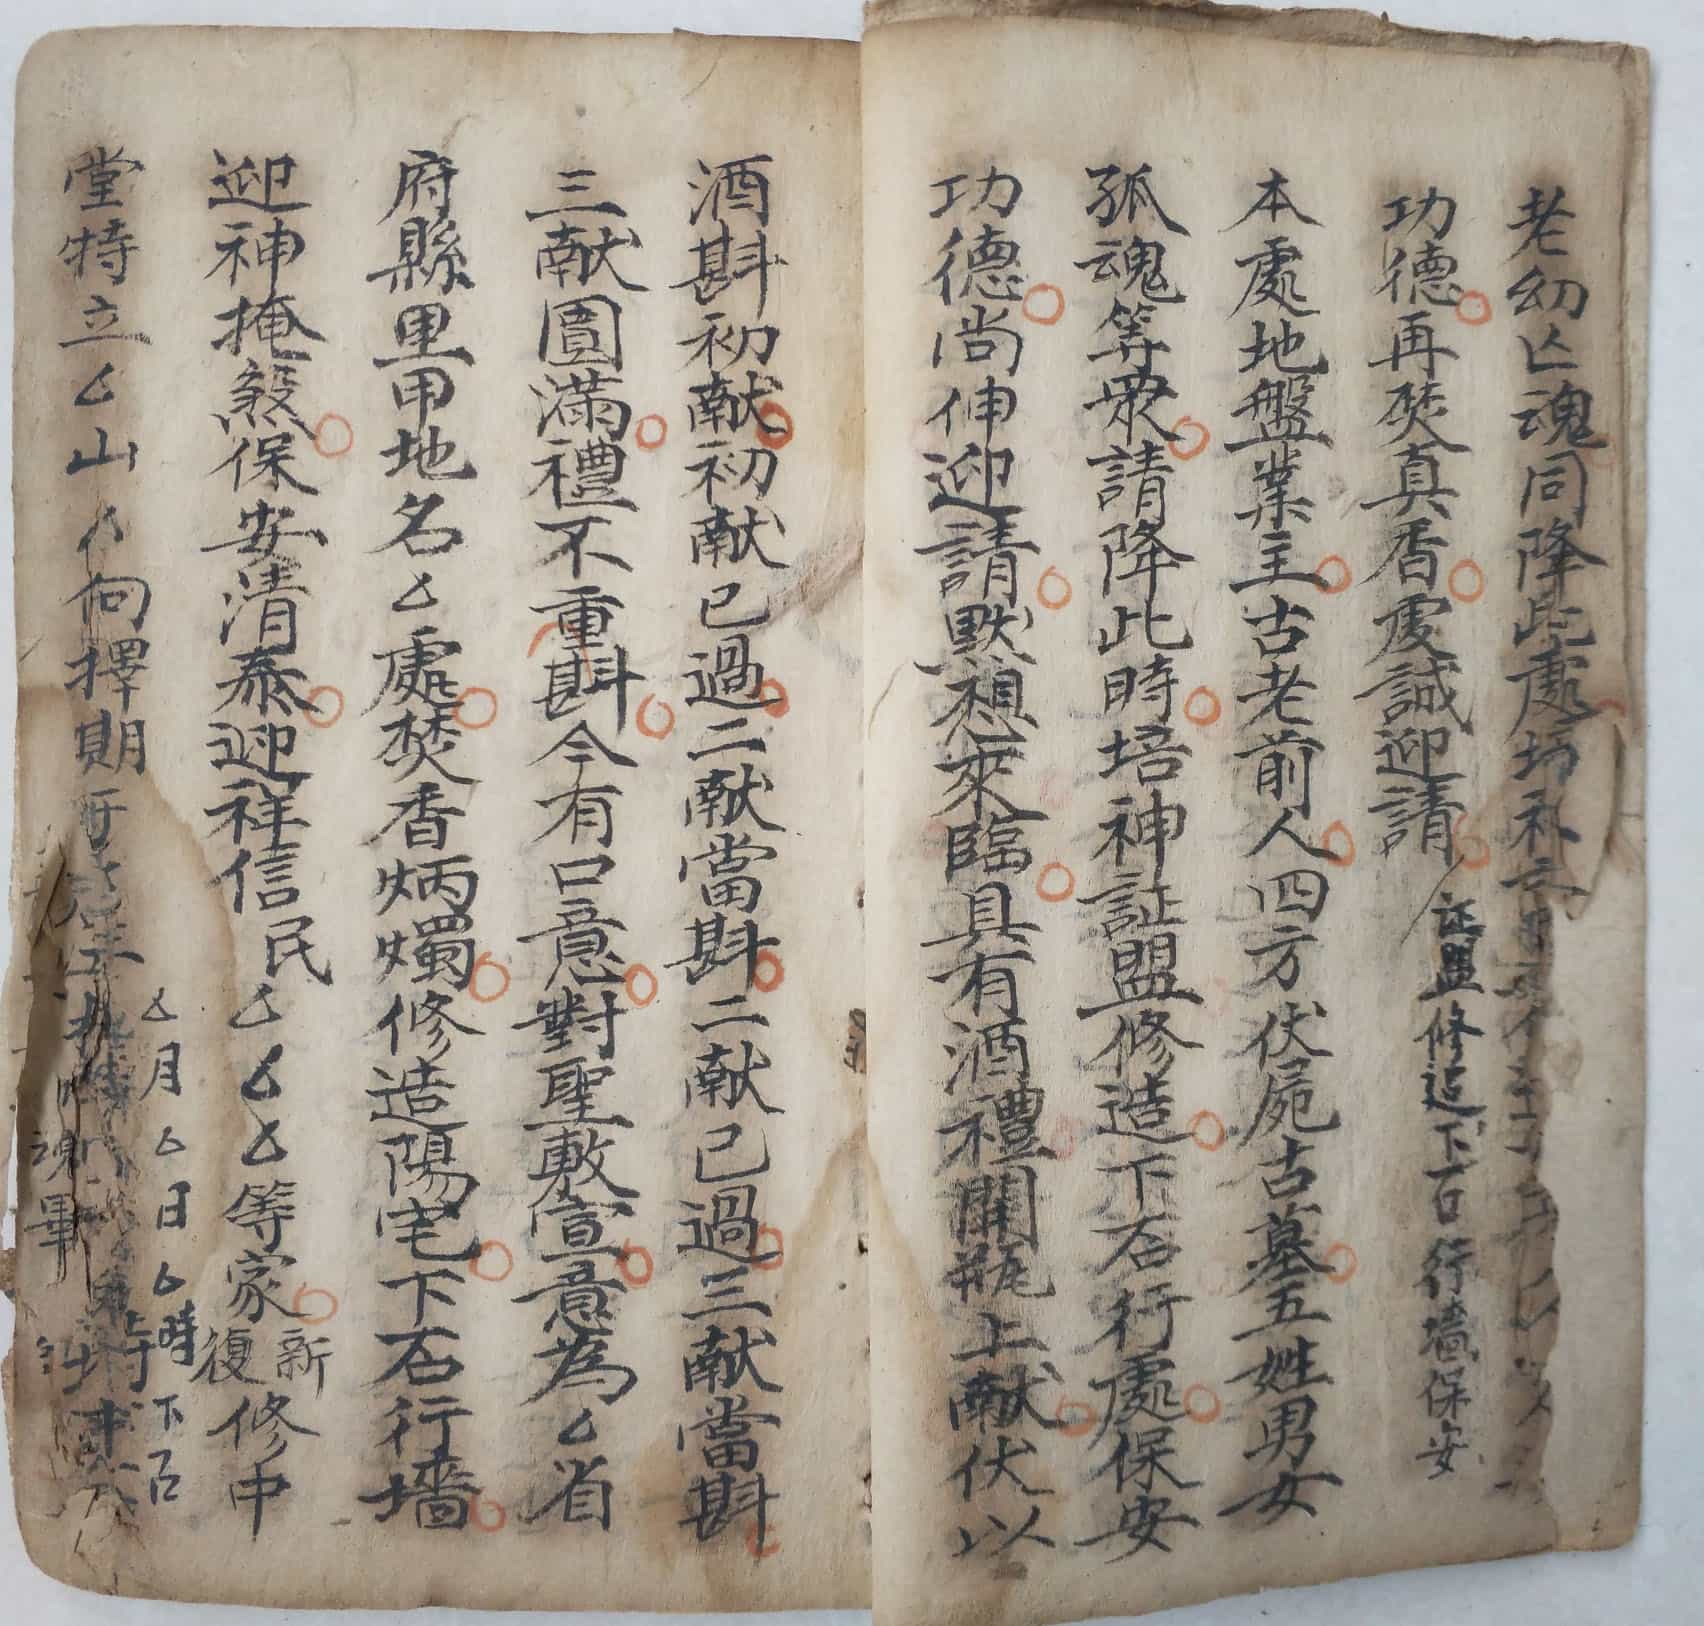 老幼亡魂同降此處
功德再焚真香虔誠迎請
証盟修造下石行墻保安
本處地盤業主古老前人四方伏屍古墓五姓男女
孤魂等眾請降此時培神証盟修造下石行處保安
功德尚伸迎請默想來臨具有酒禮開瓶上献伏以
酒斟初献初献已過二献當斟二献已過三献當斟
三献圓滿禮不重斟今有口意對聖敷宣意為厶省
府縣里甲地名厶處焚香炳燭修造陽宅下石行墻
迎神掩煞保安清泰迎祥信民厶厶厶等家新復修中
堂特立厶山厶向擇期
厶月厶日厶時下石
畢